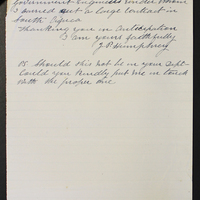 Government Engineers under whom
I carried out a large contract in
South Africa
Thanking you in anticipation
I am yours faithfully
J P Humphrey
PS. Should this not be in your Dept.
Could you kindly put me in touch
with the proper one.